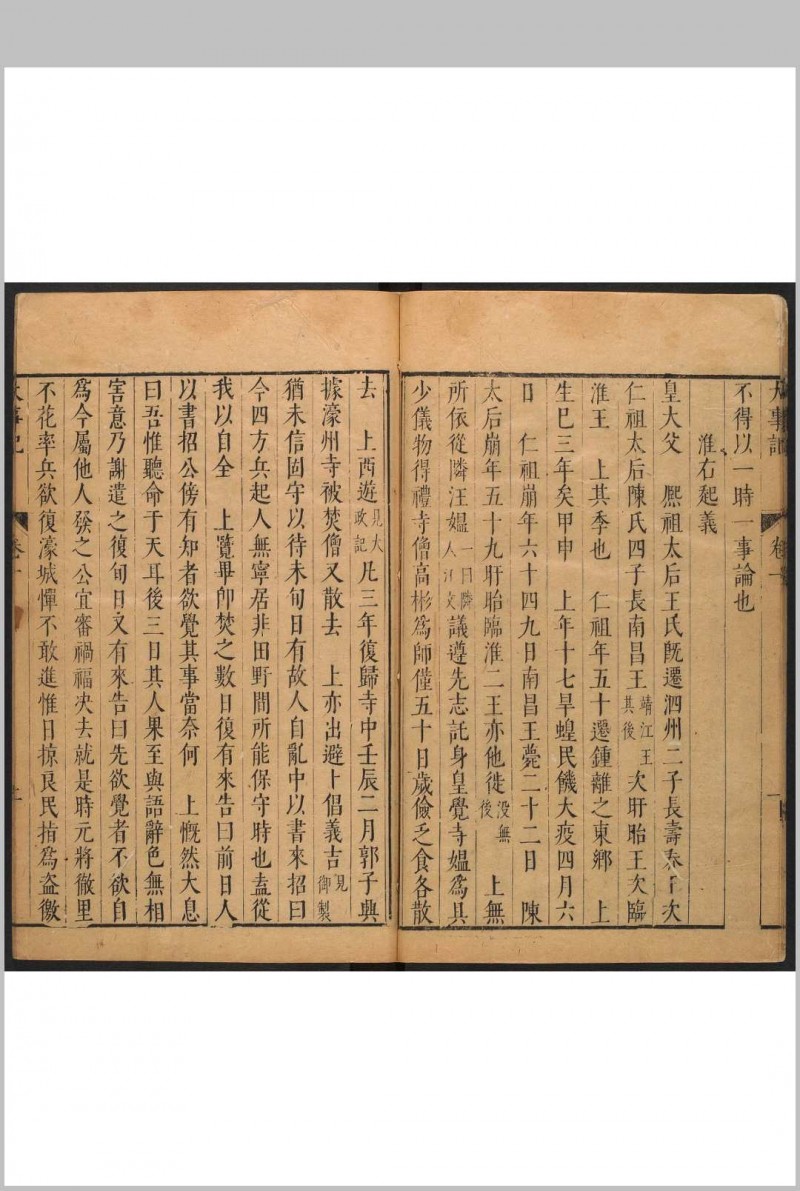 大事記 卷一 一
不得以一時一事論也
淮右起義
皇大父 熈祖太后王氏旣遷泗州二子長壽春王次
仁祖太后陳氏四子長南昌王靖江王其後次盱眙王次臨
淮王 上其季也 仁祖年五十遷鍾離之東鄉 上
生巳三年矣甲申 上年十七旱蝗民饑大疫四月六
日 仁祖崩年六十四九日南昌王薨二十二日 陳
太后崩年五十九盱眙臨淮二王亦他徙没無後 上無
所依從隣汪媼一曰隣人汪文議遵先志託身皇覺寺媼爲具
少儀物得禮寺僧高彬爲師僅五十日歲儉乏食各散
去 上西遊見大政記凡三年復歸寺中壬辰二月郭子興
據濠州寺被焚僧又散去 上亦出避卜倡義吉見御製
猶未信固守以待未旬日有故人自亂中以書來招曰
今四方兵起人無寧居非田野間所能保守時也盍從
我以自全 上覽畢卽焚之數日復有來告曰前日人
以書招公傍有知者欲覺其事當奈何 上慨然大息
曰吾惟聽命于天耳後三日其人果至與語辭色無相
害意乃謝遣之復旬日又有來告曰先欲覺者不欲自
爲今屬他人發之公宜審禍福决去就是時元將徹里
不花率兵欲復濠城憚不敢進惟日掠良民指爲盗徼
大事記 卷一